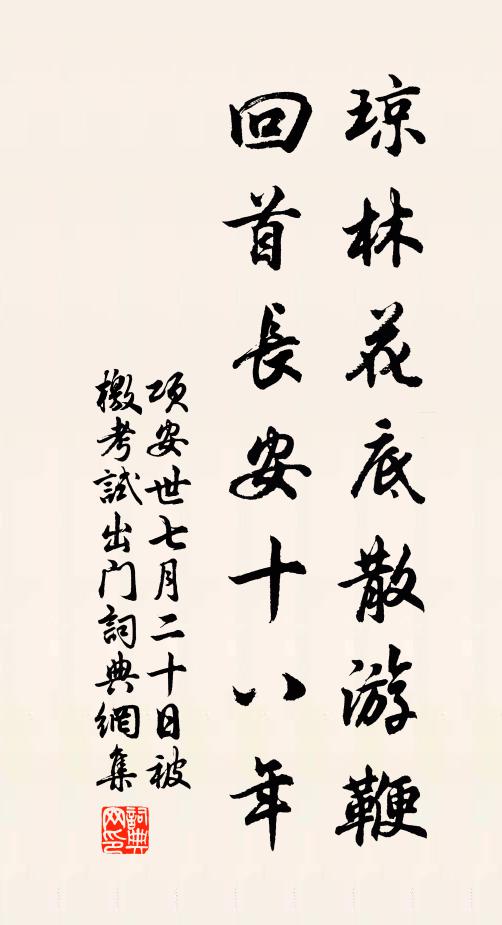 琼林花底散游鞭
回首長安十八年
项安世七月二十日被
檄考試出门詞典網集
詞典
网印